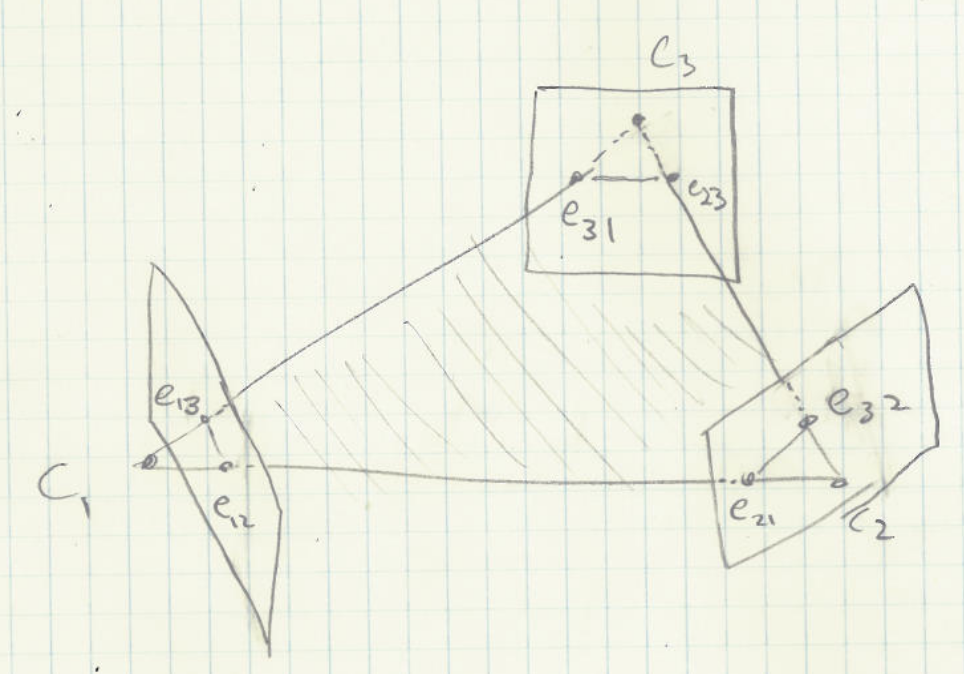 C3
e31
e23
e13
e12
C1
e32
e21
C2